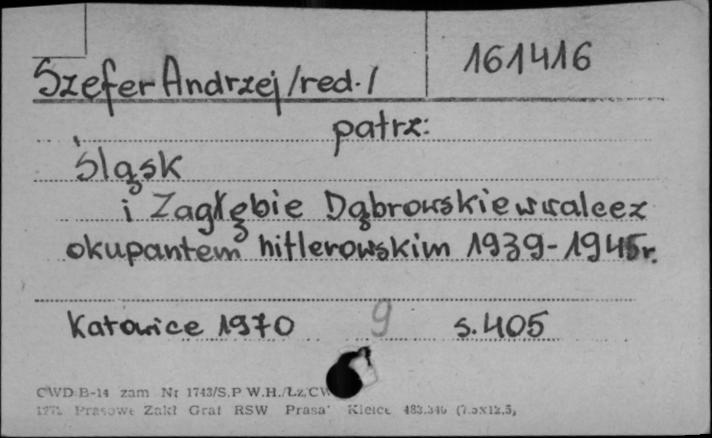 Szefer Andrzej /red./ 161416
patrz:
Śląsk
i Zagłębie Dąbrowskie w walce z
okupantem hitlerowskim 1939-1945r.
Katowice 1970 9 s.405
CWD B-14 zam Nr 1743/S.P W.H./Łz.CW
Prasowe Zakł Graf RSW Prasa" Kielce